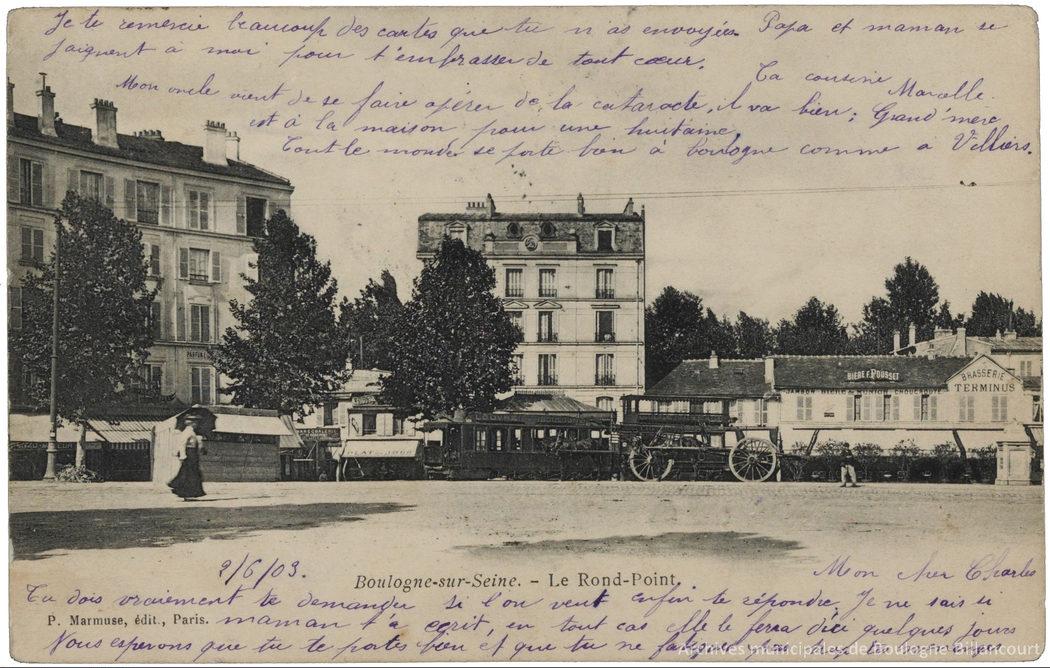 Je te remercie beaucoup des cartes que tu m'as envoyées. Papa et maman se
joignent à moi pour t'embrasser de tout cœur.
Ta cousine Marcelle.
Mon oncle vient de se faire opérer de la cataracte, il va bien; Grand'mère
est à la maison pour une huitaine.
Tout le monde se porte bien à Boulogne comme a Villiers.
PARFUM
BIÈRE F. POUSSET
BRASSERIE
TERMINUS
JAMBON BIÈRE CHOUCROUTE
PLAT DU JOUR
2/6/03.
Boulogne-sur-Seine. - Le Rond-Point.
Mon cher Charles
Tu dois vraiment te demander si l'on veut enfin te répondre. Je ne sais si
P. Marmuse, édit., Paris.
maman t'a écrit, en tout cas elle le fera d'ici quelques jours
Nous esperons que tu te portes bien et que tu ne
Archives municipales de Boulogne-Billancourt